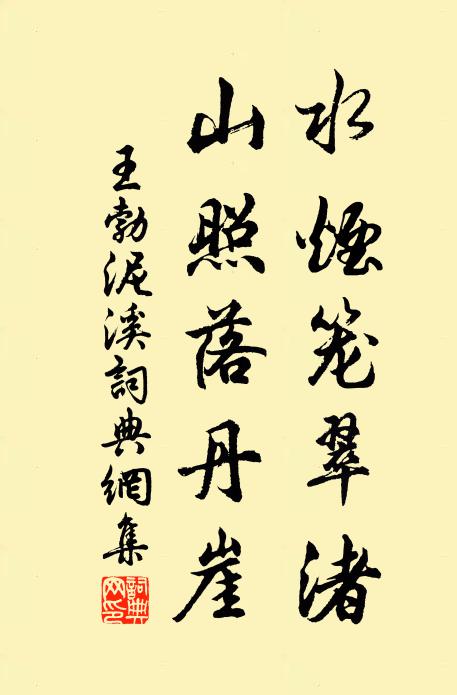 水煙笼翠渚
山照落丹崖
王勃泥溪詞典網集
詞典网印